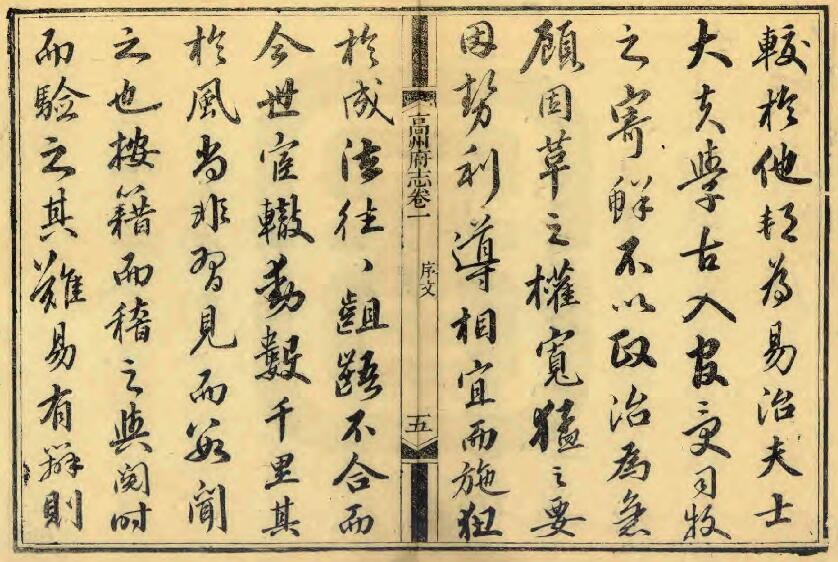 較於他郡為易治夫士
大夫學古入官受司牧
之寄鮮不以政治為急
顧因革之權寬猛之要
因勢利導相宜而施狃
高州府志卷一
序文
五
於成法往丶齟齬不合而
今世宦轍動數千里其
於風尚非習見而聞
之也按籍而稽之與閱時
而驗之其難易有辨則